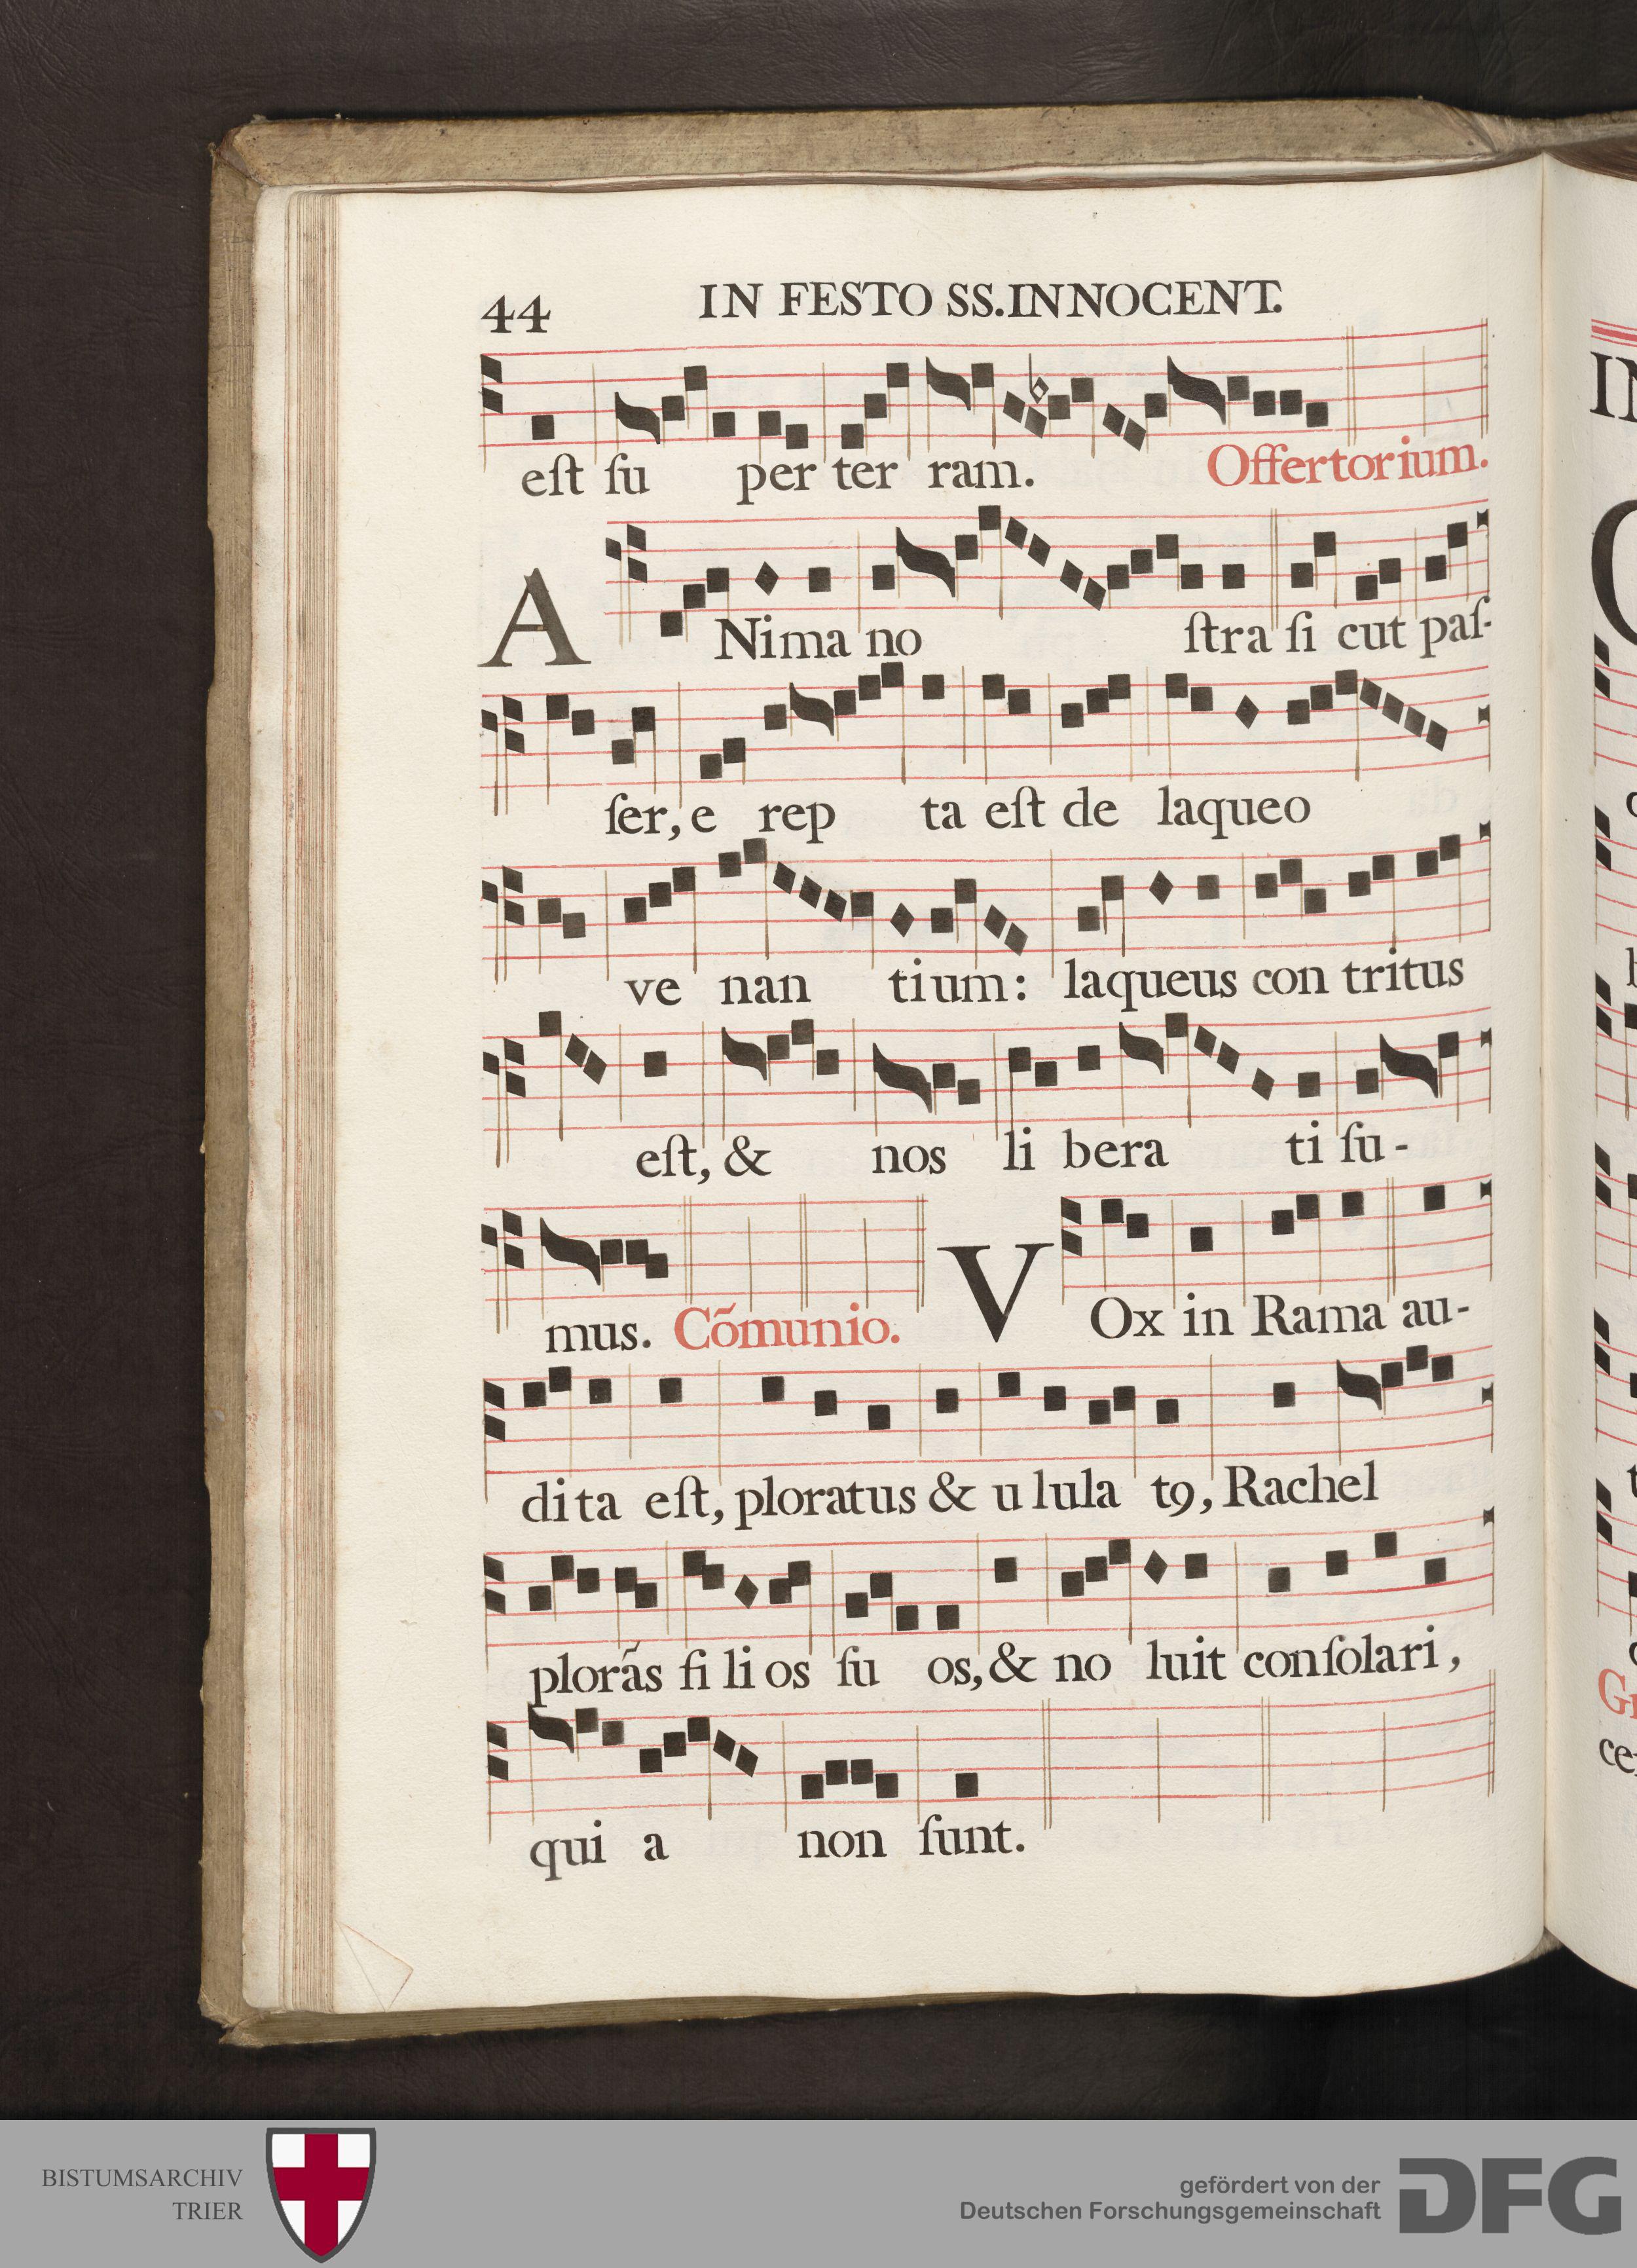 44 IN FESTO SS.INNOCENT.
eſt ſu per ter ram. Offertorium.
ANima no ſtra ſi cut paſ-
ſer, e rep ta eſt de laqueo
ve nan tium: laqueus con tritus
eſt, & nos li bera ti ſu-
mus. Cõmunio. VOx in Rama au-
dita eſt, ploratus & u lula tꝯ, Rachel
plorãs fi li os ſu os, & no luit conſolari,
qui a non ſunt.
BISTUMSARCHIV
TRIER
gefördert von der
Deutschen Forschungsgemeinschaft
DFG